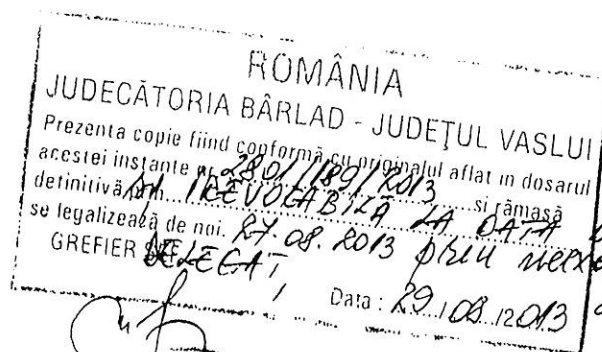 ROMÂNIA
JUDECĂTORIA BÂRLAD - JUDEŢUL VASLUI
Prezenta copie fiind conformă cu originalul aflat in dosarul
acestei instante nr 2801/189/2013 si rămasă
definitivă ŞI IREVOCABILĂ LA DATA
se legalizează de noi. 27.08.2013 prin
GREFIER ŞEF, DELEGAT,
Data : 29./08./2013